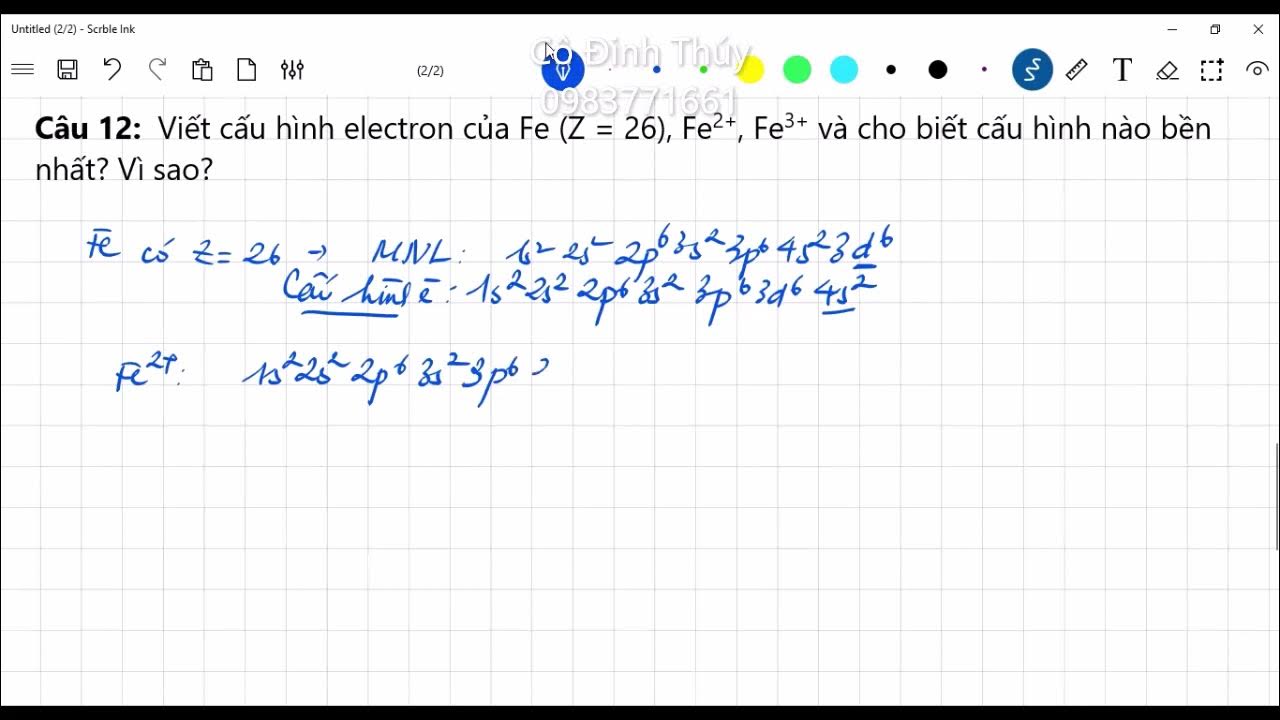 Untitled (2/2) - Scrble Ink
Cô Đinh Thúy
(2/2)
T
0983771661
Câu 12: Viết cấu hình electron của Fe (Z = 26), Fe²⁺, Fe³⁺ và cho biết cấu hình nào bền
nhất? Vì sao?
Fe có Z = 26 → MNL: 1s² 2s² 2p⁶ 3s² 3p⁶ 4s² 3d⁶
Cấu hình e: 1s² 2s² 2p⁶ 3s² 3p⁶ 3d⁶ 4s²
Fe²⁺: 1s² 2s² 2p⁶ 3s² 3p⁶